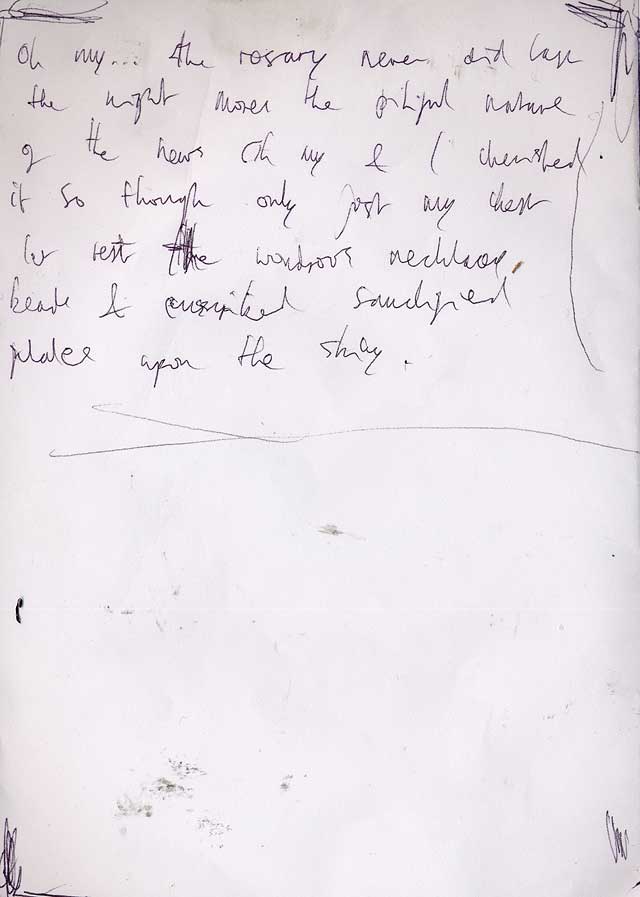 Oh my... the rosary never did last
the night mores the pitiful nature
of the news Oh my & I cherished.
it so though only just my chest
let rest the wondrous necklace,
beads & sanctified
place upon the string.